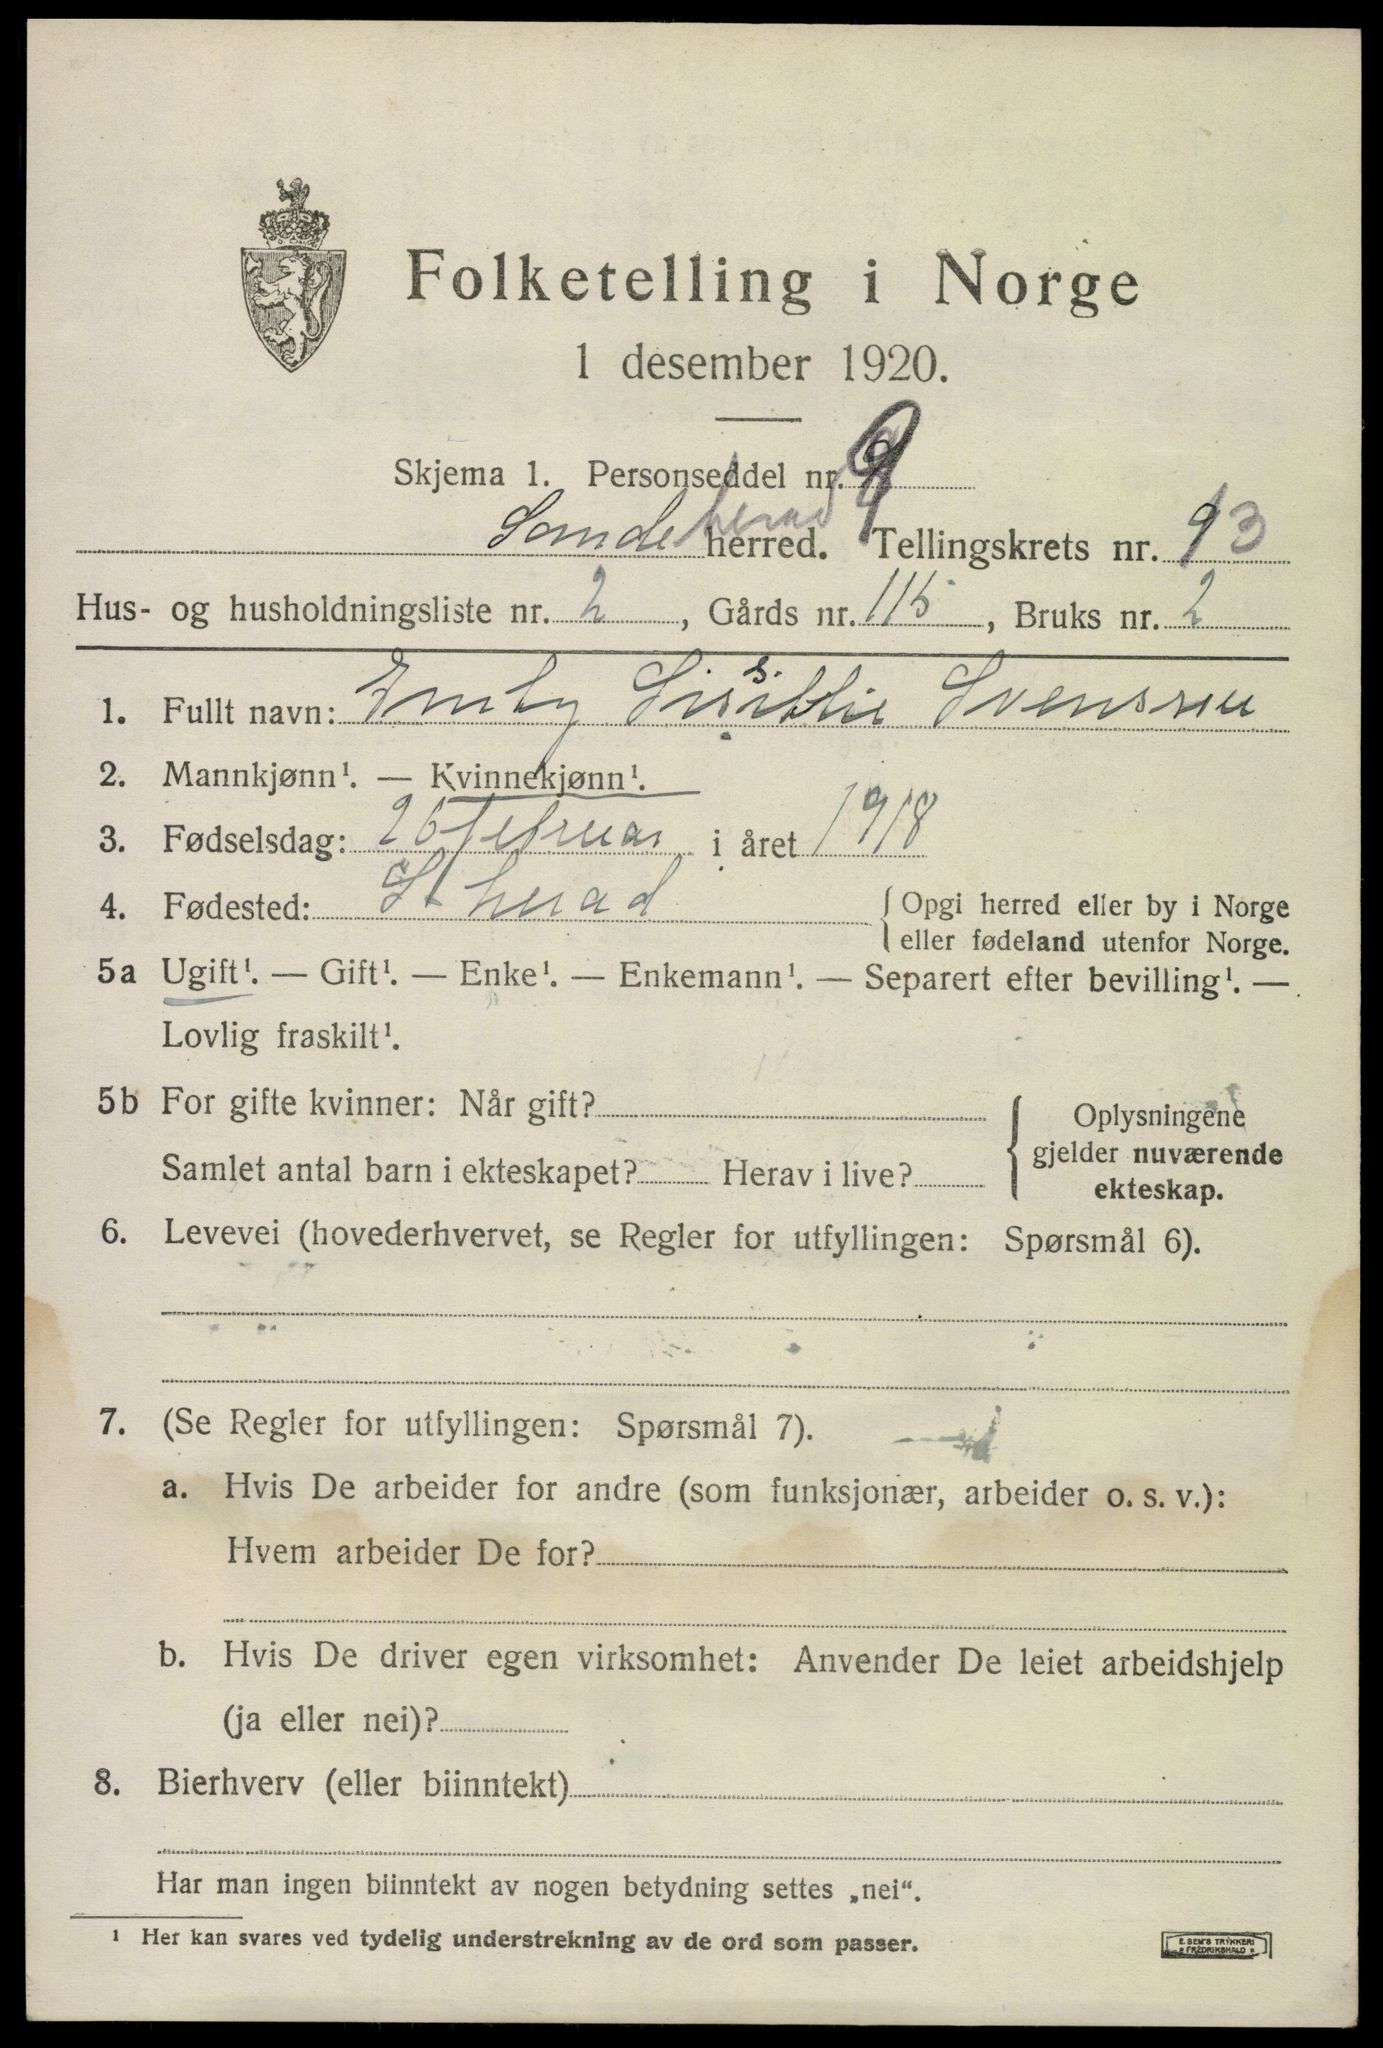 Folketelling i Norge
1 desember 1920.
Skjema 1. Personseddel nr. 9
Sande herad herred. Tellingskrets nr. 13
Hus- og husholdningsliste nr. 2, Gårds nr. 115, Bruks nr. 2
1. Fullt navn: Emly Svensen
2. Mannkjønn¹. — Kvinnekjønn¹.
3. Fødselsdag: 26 februar i året 1918
4. Fødested: S herad { Opgi herred eller by i Norge
eller fødeland utenfor Norge.
5a Ugift¹. — Gift¹. — Enke¹. — Enkemann¹. — Separert efter bevilling¹. —
Lovlig fraskilt¹.
5b For gifte kvinner: Når gift?
Samlet antal barn i ekteskapet? Herav i live?
{ Oplysningene
gjelder nuværende
ekteskap.
6. Levevei (hovederhvervet, se Regler for utfyllingen: Spørsmål 6).
7. (Se Regler for utfyllingen: Spørsmål 7).
a. Hvis De arbeider for andre (som funksjonær, arbeider o. s. v.):
Hvem arbeider De for?
b. Hvis De driver egen virksomhet: Anvender De leiet arbeidshjelp
(ja eller nei)?
8. Bierhverv (eller biinntekt)
Har man ingen biinntekt av nogen betydning settes „nei“.
¹ Her kan svares ved tydelig understrekning av de ord som passer.
E. SEM'S TRYKKERI
FREDRIKSHALD